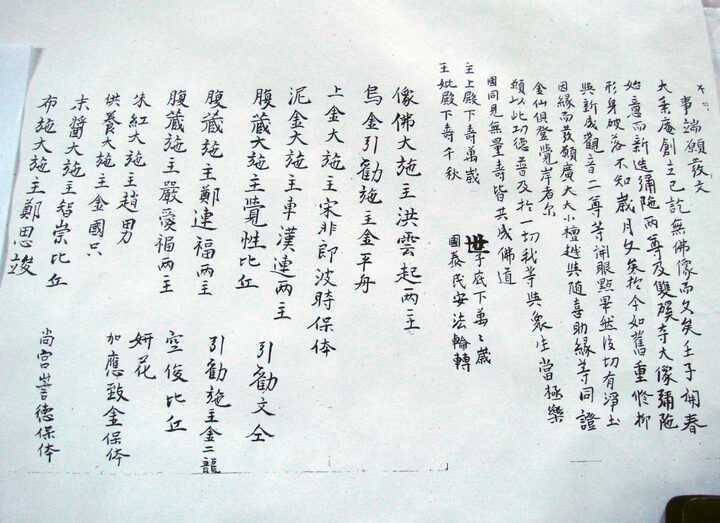 事端願發文
大乘庵創立已訖無佛像而久矣壬子開春
始意而新造彌陁兩尊及雙磎寺大像彌陁
形身破落不知歲月久矣於今如舊重修抑
與新成觀音二尊等開眼點畢然後切有淨土
因緣而發願廣大大小檀越與隨喜助緣等同證
金仙俱登覺岸者尔
願以此功德普及於一切我等與衆生當極樂
國同見無量壽皆共成佛道
主上殿下壽萬歲 世子底下萬〻歲
王妣殿下壽千秋 國泰民安法輪轉
像佛大施主洪雲起兩主
烏金引勸施主金平舟
上金大施主宋非郎波時保体
泥金大施主車漢連兩主
腹藏大施主覺性比丘 引勸文仝
腹藏施主鄭連福兩主 引勸施主金二龍
腹藏施主嚴愛福兩主 空俊比丘
朱紅大施主趙男 妍花
供養大施主金國只 加應致金保体
末醬大施主智崇比丘
布施大施主鄭思竣 尚宮德保体